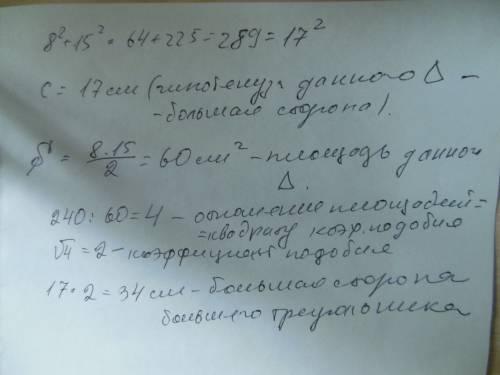 8²+15² = 64+225=289=17²
c = 17см (гипотенуза данного Δ –
– большая сторона).
S = 8·15/2 = 60 см² – площадь данного
Δ.
240 : 60 = 4 – отношение площадей =
= квадрату коэф. подобия
√4 = 2 – коэффициент подобия
17 · 2 = 34 см – большая сторона
большего треугольника